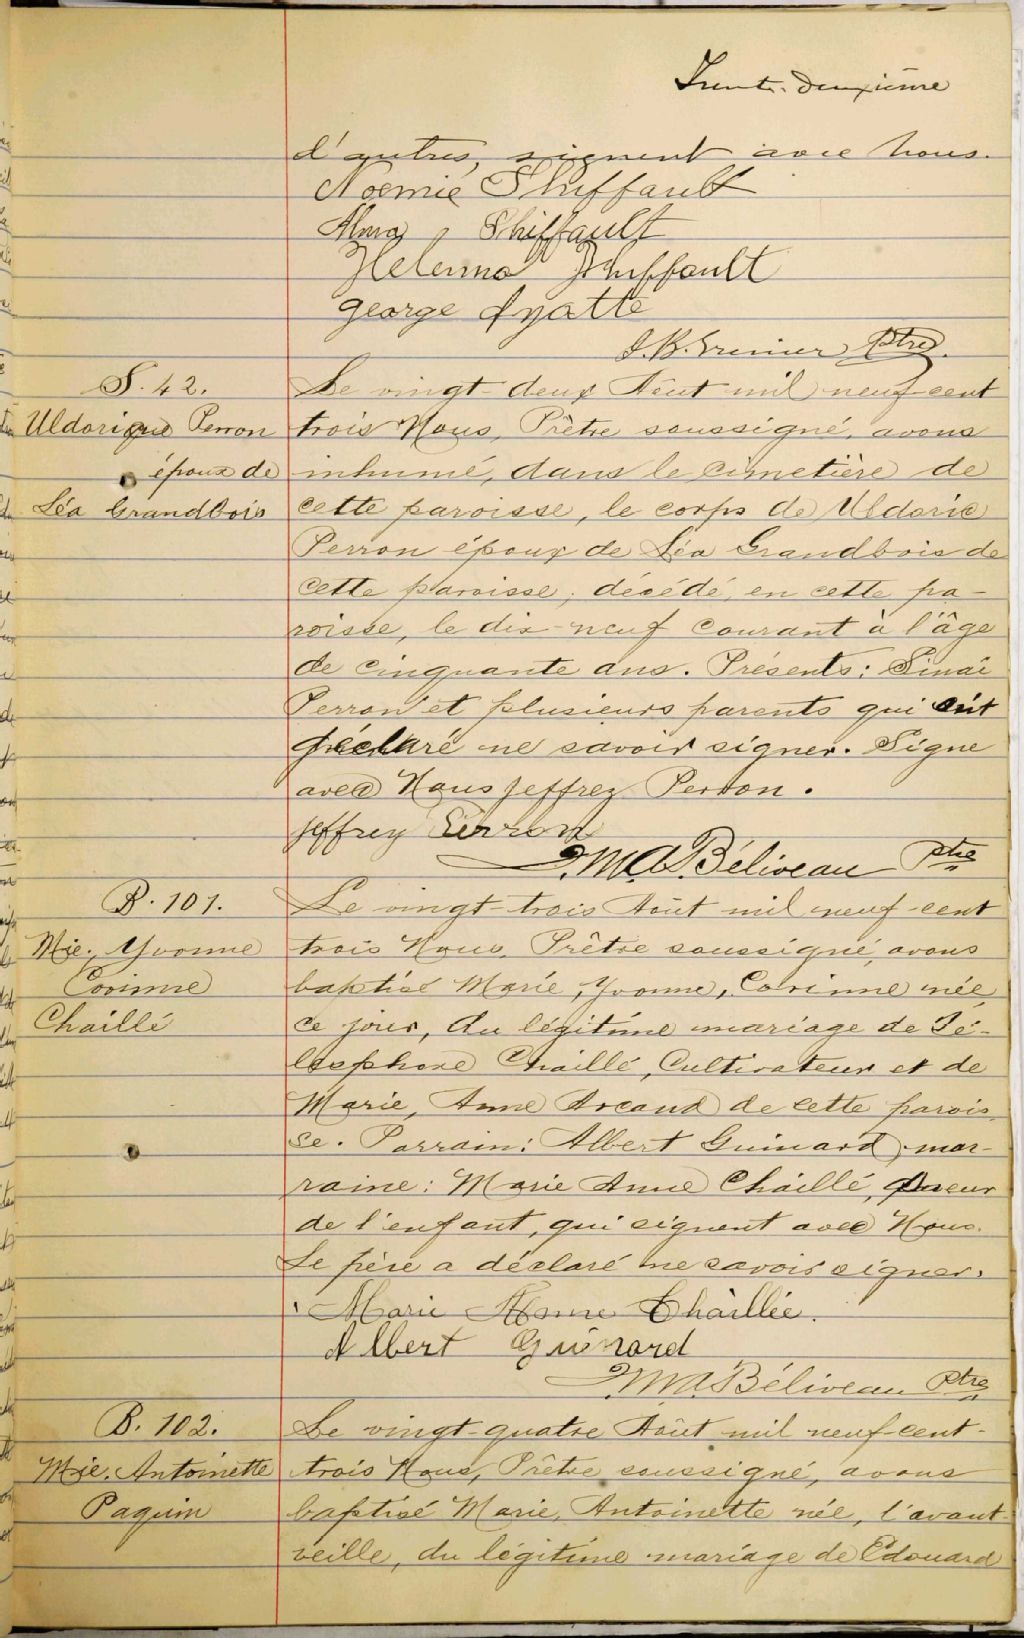 Trente-deuxième
d'autres, signent avec Nous.
Noemie Thiffault
Alma Thiffault
Helenna Thiffault
george Ayatte
J. B. Grenier Ptre.
S. 42.
Uldorique Perron
époux de
Léa Grandbois
Le vingt-deux Août mil neuf-cent
trois Nous, Prêtre soussigné, avons
inhumé, dans le cimetière de
cette paroisse, le corps de Uldoric
Perron époux de Léa Grandbois de
cette paroisse, décédé, en cette pa-
roisse, le dix-neuf courant à l'âge
de cinquante ans. Présents: Sinaï
Perron et plusieurs parents qui ont
déclaré ne savoir signer. Signe
avec Nous Jeffrey Perron.
Jeffrey Perron
J.M.A. Béliveau Ptre
B. 101.
Mie. Yvonne
Corinne
Chaillé
Le vingt-trois Août mil neuf-cent
trois Nous, Prêtre soussigné, avons
baptisé Marie, Yvonne, Corinne née,
ce jour, du légitime mariage de Té-
lesphore Chaillé, Cultivateur et de
Marie, Anne Arcand de cette parois-
se. Parrain: Albert Guinard, mar-
raine: Marie Anne Chaillé, soeur
de l'enfant, qui signent avec Nous.
Le père a déclaré ne savoir signer.
Marie Anne Chaillée.
Albert Guinard
J.M.A. Béliveau Ptre
B. 102.
Mie. Antoinette
Paquin
Le vingt-quatre Août mil neuf-cent-
trois Nous, Prêtre soussigné, avons
baptisé Marie, Antoinette née, l'avant-
veille, du légitime mariage de Edouard